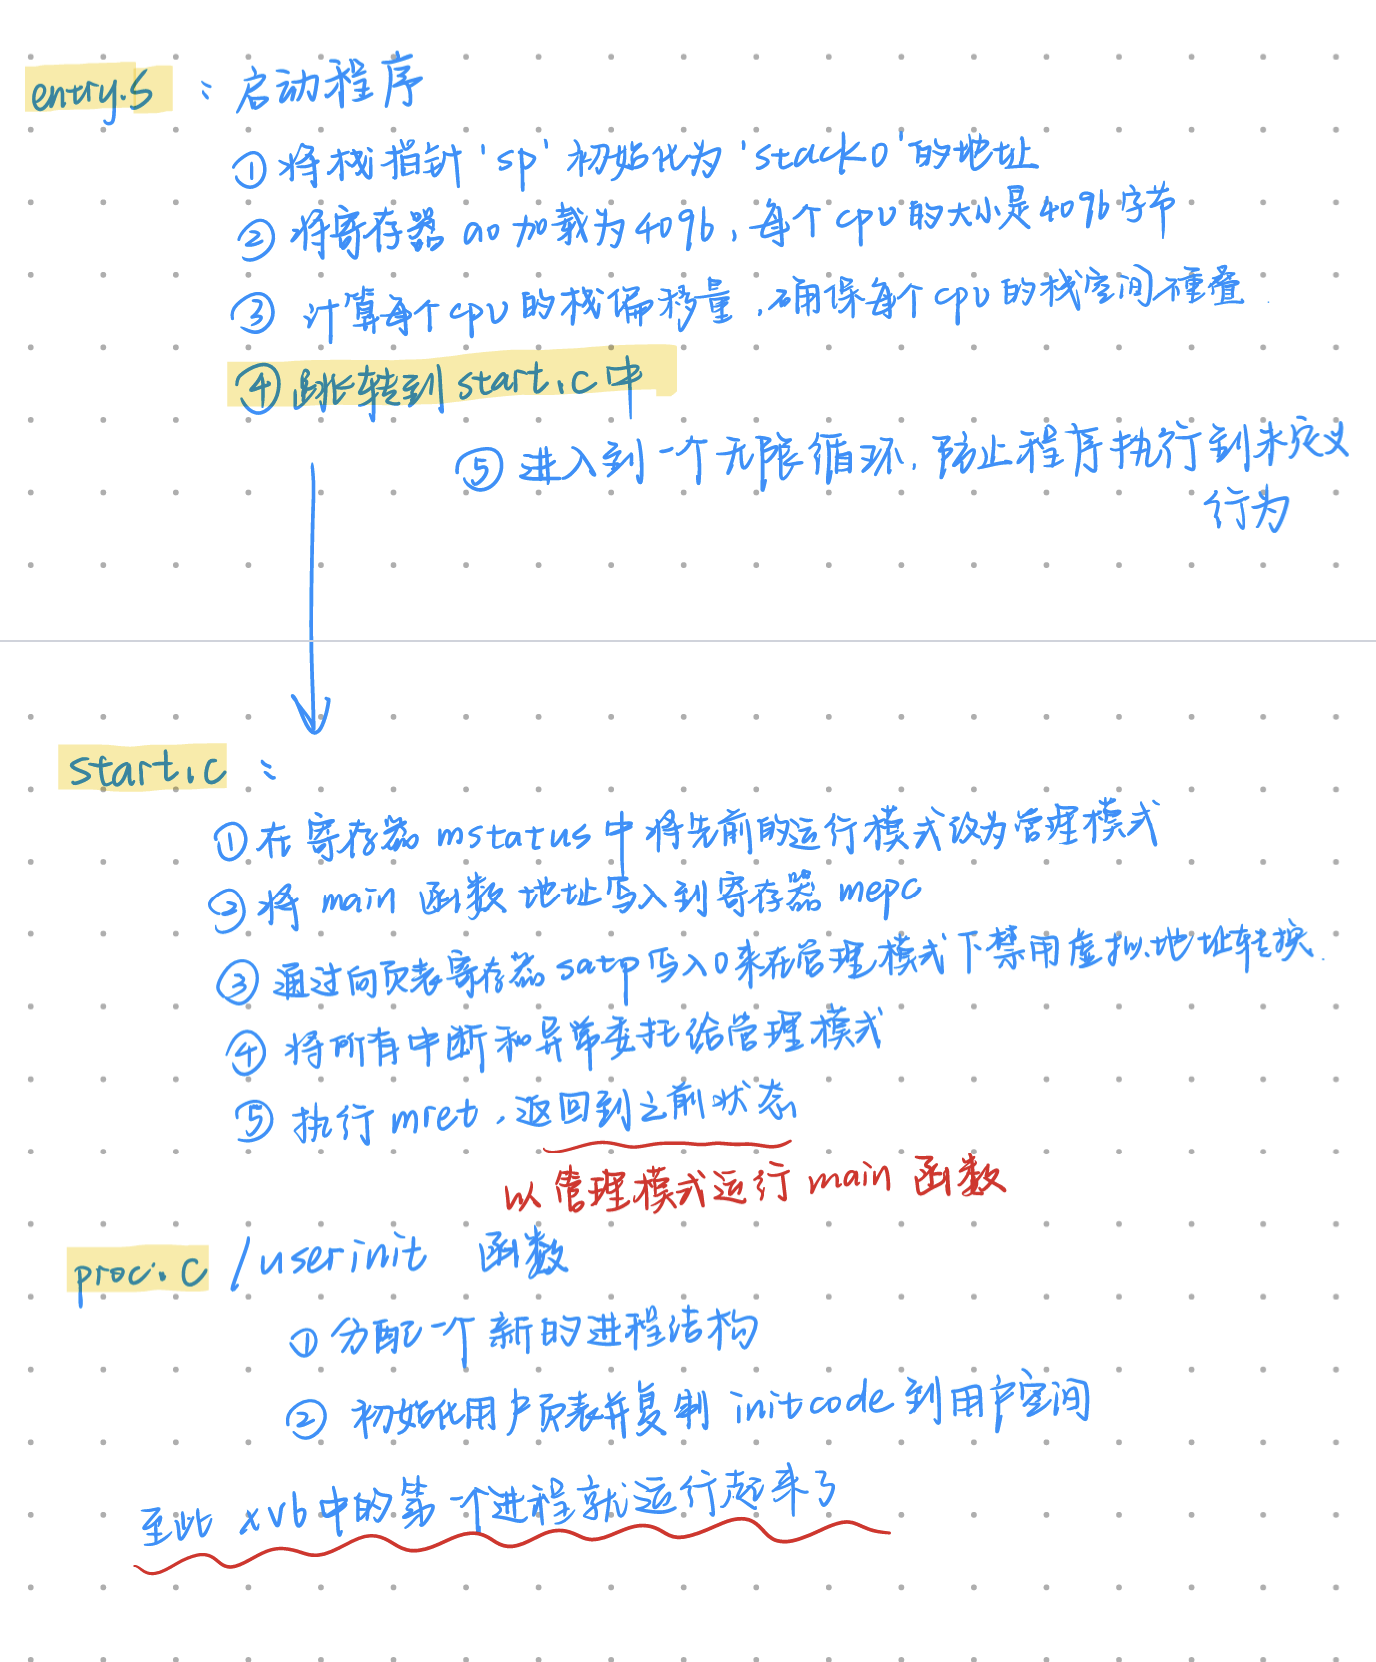 entry.S：启动程序
① 将栈指针'sp'初始化为'stack0'的地址
② 将寄存器 a0 加载为4096，每个cpu的大小是4096字节
③ 计算每个cpu的栈偏移量，确保每个cpu的栈空间不重叠.
④ 跳转到start.c中
⑤ 进入到一个无限循环，防止程序执行到未定义
行为
start.c：
① 在寄存器 mstatus 中将先前的运行模式改为管理模式
② 将 main 函数地址写入到寄存器 mepc
③ 通过向页表寄存器 satp 写入0来在管理模式下禁用虚拟地址转换.
④ 将所有中断和异常委托给管理模式
⑤ 执行 mret，返回到之前状态
以管理模式运行 main 函数
proc.c /userinit 函数
① 分配一个新的进程结构
② 初始化用户页表并复制 initcode 到用户空间
至此 xv6中的第一个进程就运行起来了